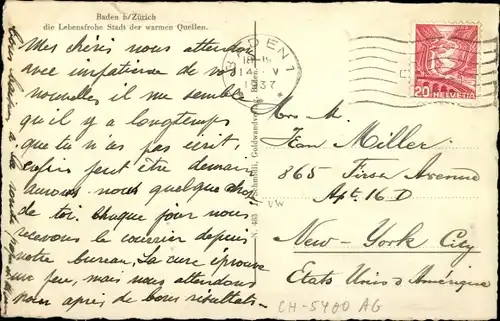 Baden b/Zürich
die Lebensfrohe Stadt der warmen Quellen.
Mes chéris nous attendons
avec impatience de vos
nouvelles, il me semble
qu'il y a longtemps
que tu n'as pas écrit,
enfin peut être demain
aurons nous quelque chose
de toi. Chaque jour nous
recevons le courrier depuis
notre bureau. La cure éprouve
un peu, mais nous attendons
pour après de bons résultats-
BADEN 1
14. V
1937
20 HELVETIA
M.
Jean Miller
865 First Avenue
Apt. 16 D
New-York City
Etats Unis d'Amérique
N. 483
VW
CH-5400 AG